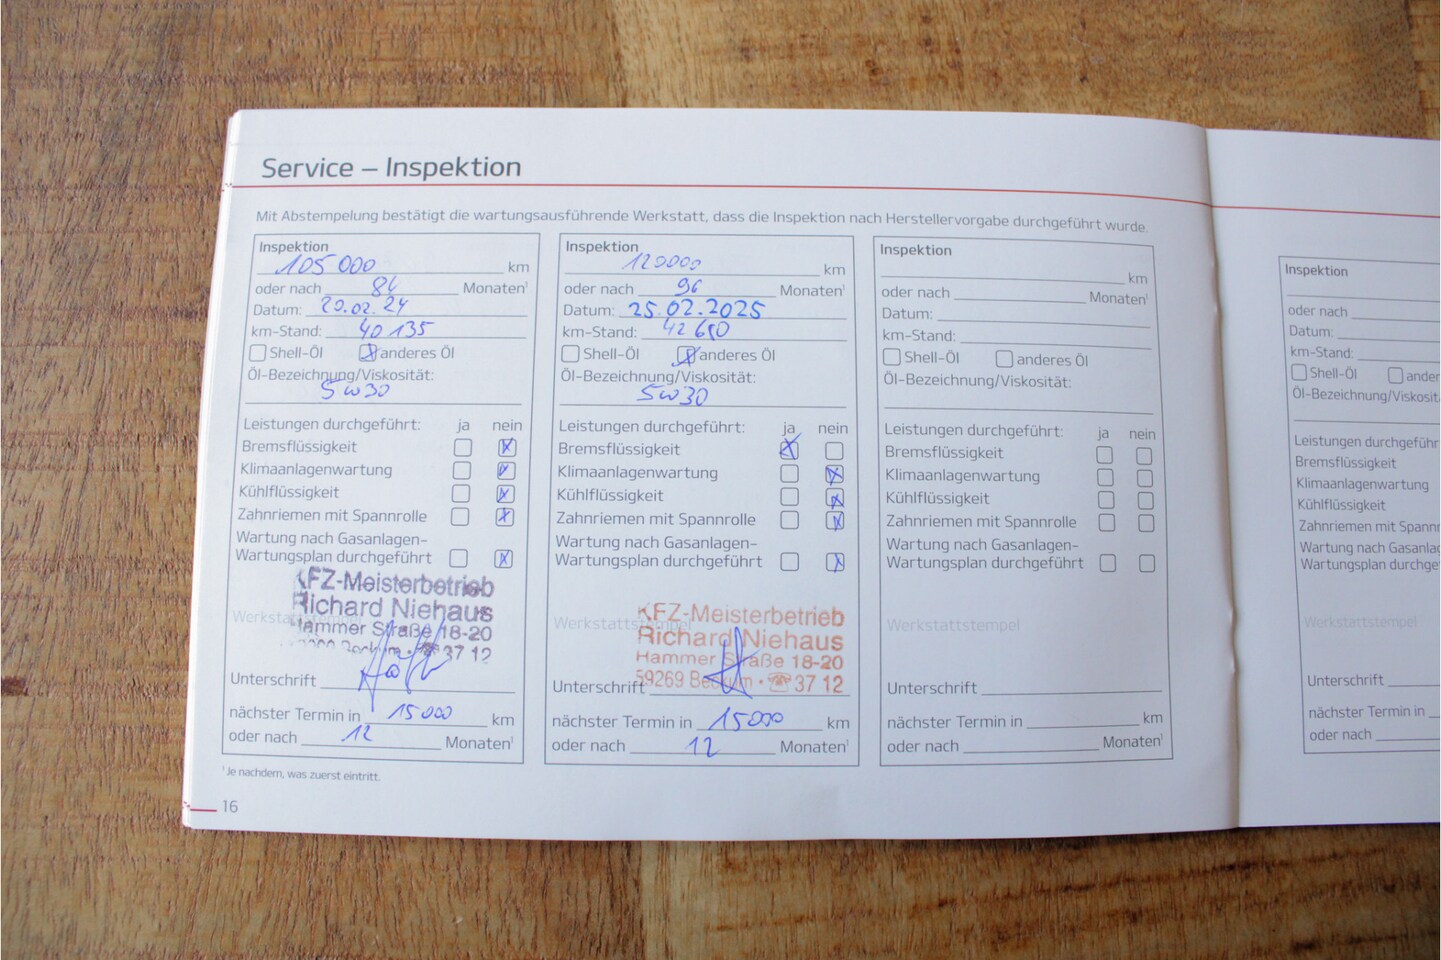 Service – Inspektion
Mit Abstempelung bestätigt die wartungsausführende Werkstatt, dass die Inspektion nach Herstellervorgabe durchgeführt wurde.
Inspektion
105 000 km
oder nach 84 Monaten¹
Datum: 20.02.24
km-Stand: 40 135
Shell-Öl anderes Öl
Öl-Bezeichnung/Viskosität:
5W30
Leistungen durchgeführt: ja nein
Bremsflüssigkeit
Klimaanlagenwartung
Kühlflüssigkeit
Zahnriemen mit Spannrolle
Wartung nach Gasanlagen-
Wartungsplan durchgeführt
KFZ-Meisterbetrieb
Richard Niehaus
Werkstattstempel
Hammer Straße 18-20
37 12
Unterschrift
nächster Termin in 15 000 km
oder nach 12 Monaten¹
Inspektion
120000 km
oder nach 96 Monaten¹
Datum: 25.02.2025
km-Stand: 42 650
Shell-Öl anderes Öl
Öl-Bezeichnung/Viskosität:
5W30
Leistungen durchgeführt: ja nein
Bremsflüssigkeit
Klimaanlagenwartung
Kühlflüssigkeit
Zahnriemen mit Spannrolle
Wartung nach Gasanlagen-
Wartungsplan durchgeführt
KFZ-Meisterbetrieb
Werkstattstempel
Richard Niehaus
Hammer Straße 18-20
59269 Beckum • ☎ 37 12
Unterschrift
nächster Termin in 15000 km
oder nach 12 Monaten¹
Inspektion
km
oder nach Monaten¹
Datum:
km-Stand:
Shell-Öl anderes Öl
Öl-Bezeichnung/Viskosität:
Leistungen durchgeführt: ja nein
Bremsflüssigkeit
Klimaanlagenwartung
Kühlflüssigkeit
Zahnriemen mit Spannrolle
Wartung nach Gasanlagen-
Wartungsplan durchgeführt
Werkstattstempel
Unterschrift
nächster Termin in km
oder nach Monaten¹
¹Je nachdem, was zuerst eintritt.
16
Inspektion
oder nach
Datum:
km-Stand:
Shell-Öl ander
Öl-Bezeichnung/Viskosit
Leistungen durchgeführ
Bremsflüssigkeit
Klimaanlagenwartung
Kühlflüssigkeit
Zahnriemen mit Spannr
Wartung nach Gasanlag
Wartungsplan durchge
Werkstattstempel
Unterschrift
nächster Termin in
oder nach